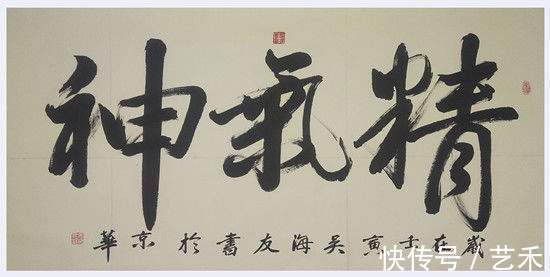 精氣神
歲在壬寅吴海友書於京華
快传号／艺禾